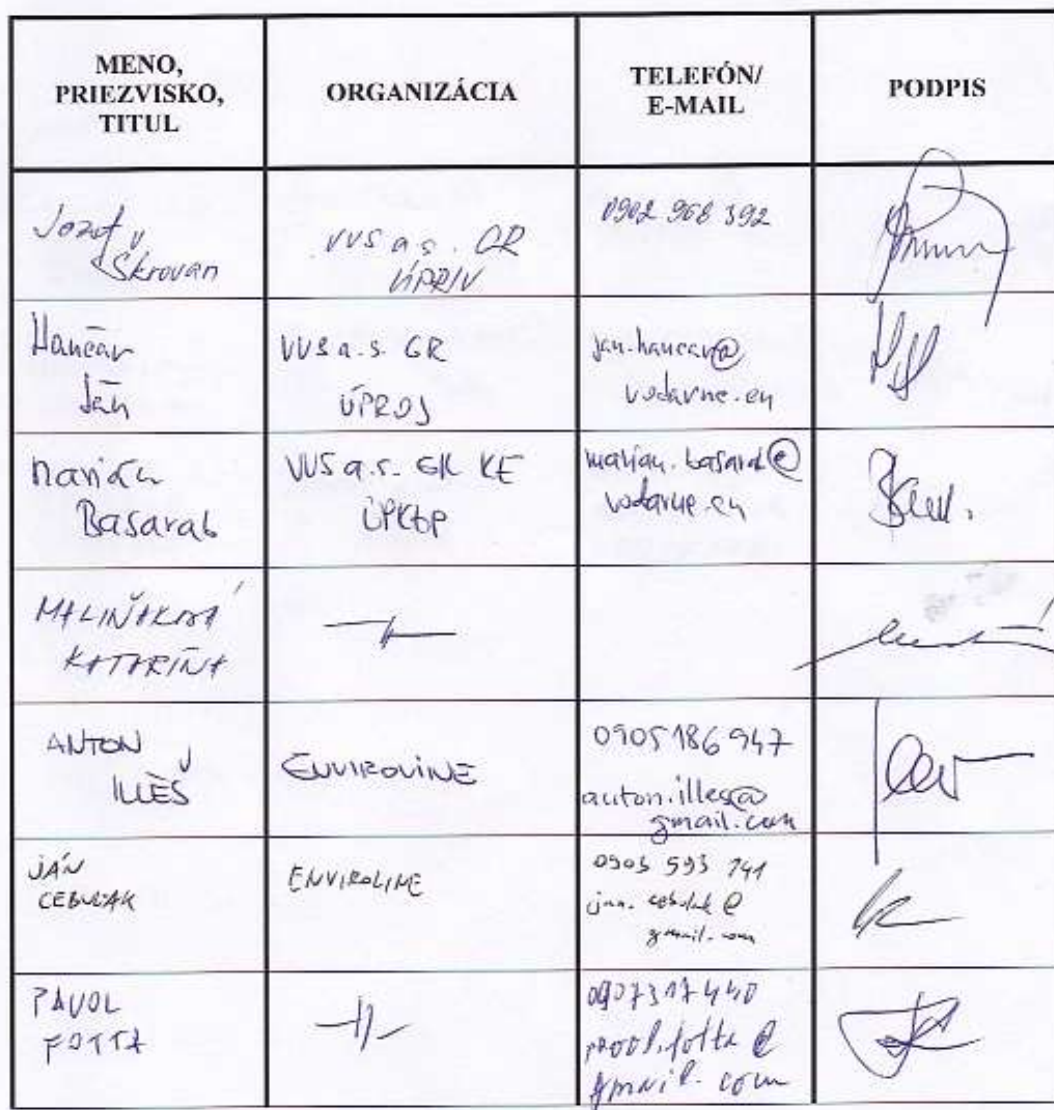 MENO,
PRIEZVISKO,
TITUL
ORGANIZÁCIA
TELEFÓN/
E-MAIL
PODPIS
Jozef
Škrovan
VVS a.s. GR
ÚPRIV
0902 968 392
Hančar
Ján
VVS a.s. GR
ÚPROJ
jan.hancar@
vodarne.eu
Marián
Basarab
VVS a.s. GR KE
marian.basarab@
vodarne.eu
MALIŇÁKOVÁ
KATARÍNA
ANTON
ILLÉŠ
ENVIROLINE
0905 186 947
anton.illes@
gmail.com
JÁN
CEBUĽAK
ENVIROLINE
0903 593 741
jan.cebulak@
gmail.com
PAVOL
FOTTA
0907317440
pavol.fotta@
gmail.com